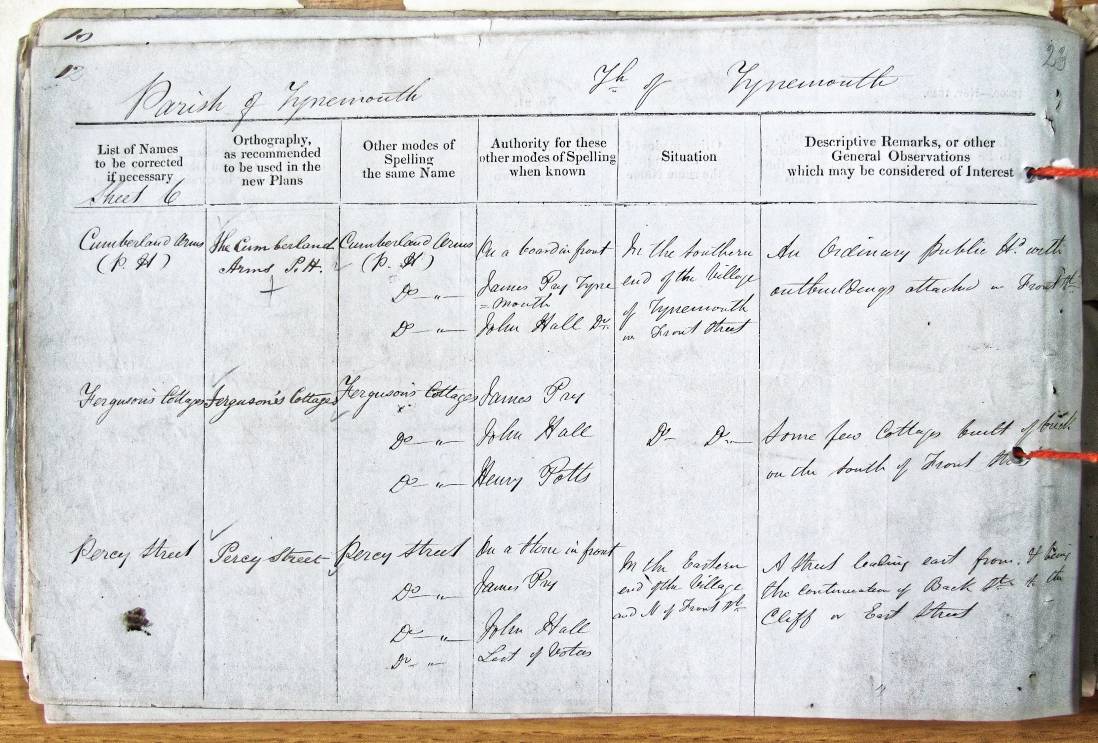 10
12
23
Parish of Tynemouth
Tp of Tynemouth
List of Names
to be corrected
if necessary
Orthography,
as recommended
to be used in the
new Plans
Other modes of
Spelling
the same Name
Authority for these
other modes of Spelling
when known
Situation
Descriptive Remarks, or other
General Observations
which may be considered of Interest
Sheet 6
Cumberland Arms
(P. H)
The Cumberland
Arms P.H.
Cumberland Arms
(P. H)
Do "
Do "
On a board in front
James Pry Tyne
=mouth
John Hall Do
In the Southern
end of the Village
of Tynemouth
in Front Street
An Ordinary public Hs. with
outbuildings attached in Front St.
Ferguson's Cottages
Ferguson's Cottages
Ferguson's Cottages
Do "
Do "
James Pry
John Hall
Henry Potts
Do Do
Some few Cottages built of brick
on the South of Front
Percy Street
Percy Street
Percy Street
Do "
Do "
Do "
On a Stone in front
James Pry
John Hall
List of Votes
In the Eastern
end of the Village
and N of Front St.
A Street leading east from, & being
the continuation of Back St. to the
Cliff or East Street